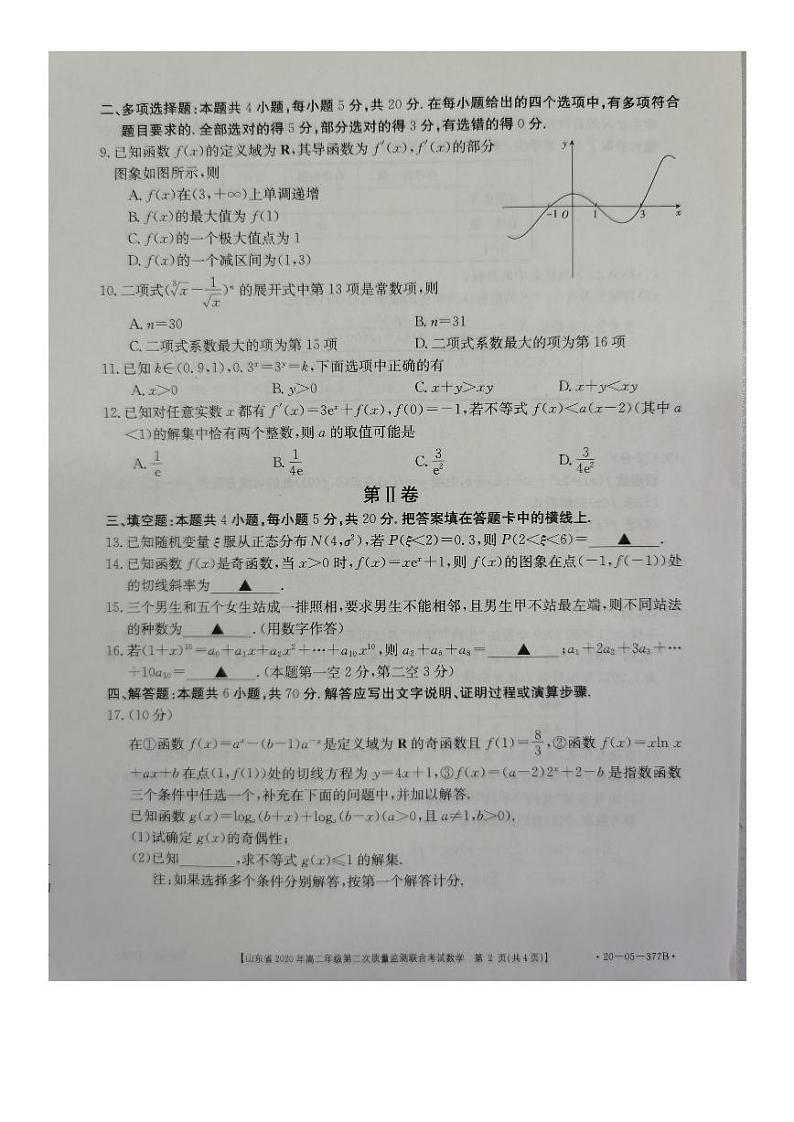 二、多项选择题:本题共 4 小题,每小题 5 分,共 20 分. 在每小题给出的四个选项中,有多项符合
题目要求的. 全部选对的得 5 分,部分选对的得 3 分,有选错的得 0 分.
9. 已知函数 f(x)的定义域为 R,其导函数为 f′(x),f′(x)的部分
图象如图所示,则
A. f(x)在(3,+∞)上单调递增
B. f(x)的最大值为 f(1)
C. f(x)的一个极大值点为 1
D. f(x)的一个减区间为(1,3)
y
-1 O 1 3 x
10. 二项式(∛x − 1/√x)ⁿ 的展开式中第 13 项是常数项,则
A. n=30 B. n=31
C. 二项式系数最大的项为第 15 项 D. 二项式系数最大的项为第 16 项
11. 已知 k∈(0.9,1),0.3ˣ=3ʸ=k,下面选项中正确的有
A. x>0 B. y>0 C. x+y>xy D. x+y<xy
12. 已知对任意实数 x 都有 f′(x)=3eˣ+f(x),f(0)=−1,若不等式 f(x)<a(x−2)(其中 a
<1)的解集中恰有两个整数,则 a 的取值可能是
A. 1/e B. 1/4e C. 3/e² D. 3/4e²
第Ⅱ卷
三、填空题:本题共 4 小题,每小题 5 分,共 20 分. 把答案填在答题卡中的横线上.
13. 已知随机变量 ξ 服从正态分布 N(4,σ²),若 P(ξ<2)=0.3,则 P(2<ξ<6)= ▲ .
14. 已知函数 f(x)是奇函数,当 x>0 时,f(x)=xeˣ+1,则 f(x)的图象在点(−1,f(−1))处
的切线斜率为 ▲ .
15. 三个男生和五个女生站成一排照相,要求男生不能相邻,且男生甲不站最左端,则不同站法
的种数为 ▲ .(用数字作答)
16. 若(1+x)¹⁰=a₀+a₁x+a₂x²+⋯+a₁₀x¹⁰,则 a₂+a₆+a₈= ▲ ;a₁+2a₂+3a₃+⋯
+10a₁₀= ▲ .(本题第一空 2 分,第二空 3 分)
四、解答题:本题共 6 小题,共 70 分. 解答应写出文字说明、证明过程或演算步骤.
17. (10 分)
在①函数 f(x)=aˣ−(b−1)a⁻ˣ是定义域为 R 的奇函数且 f(1)=8/3,②函数 f(x)=xln x
+ax+b 在点(1,f(1))处的切线方程为 y=4x+1,③f(x)=(a−2)2ˣ+2−b 是指数函数
三个条件中任选一个,补充在下面的问题中,并加以解答.
已知函数 g(x)=logₐ(b+x)+logₐ(b−x)(a>0,且 a≠1,b>0).
(1)试确定 g(x)的奇偶性;
(2)已知 ,求不等式 g(x)≤1 的解集.
注:如果选择多个条件分别解答,按第一个解答计分.
【山东省 2020 年高二年级第二次质量监测联合考试数学 第 2 页(共 4 页)】 ·20-05-377B·